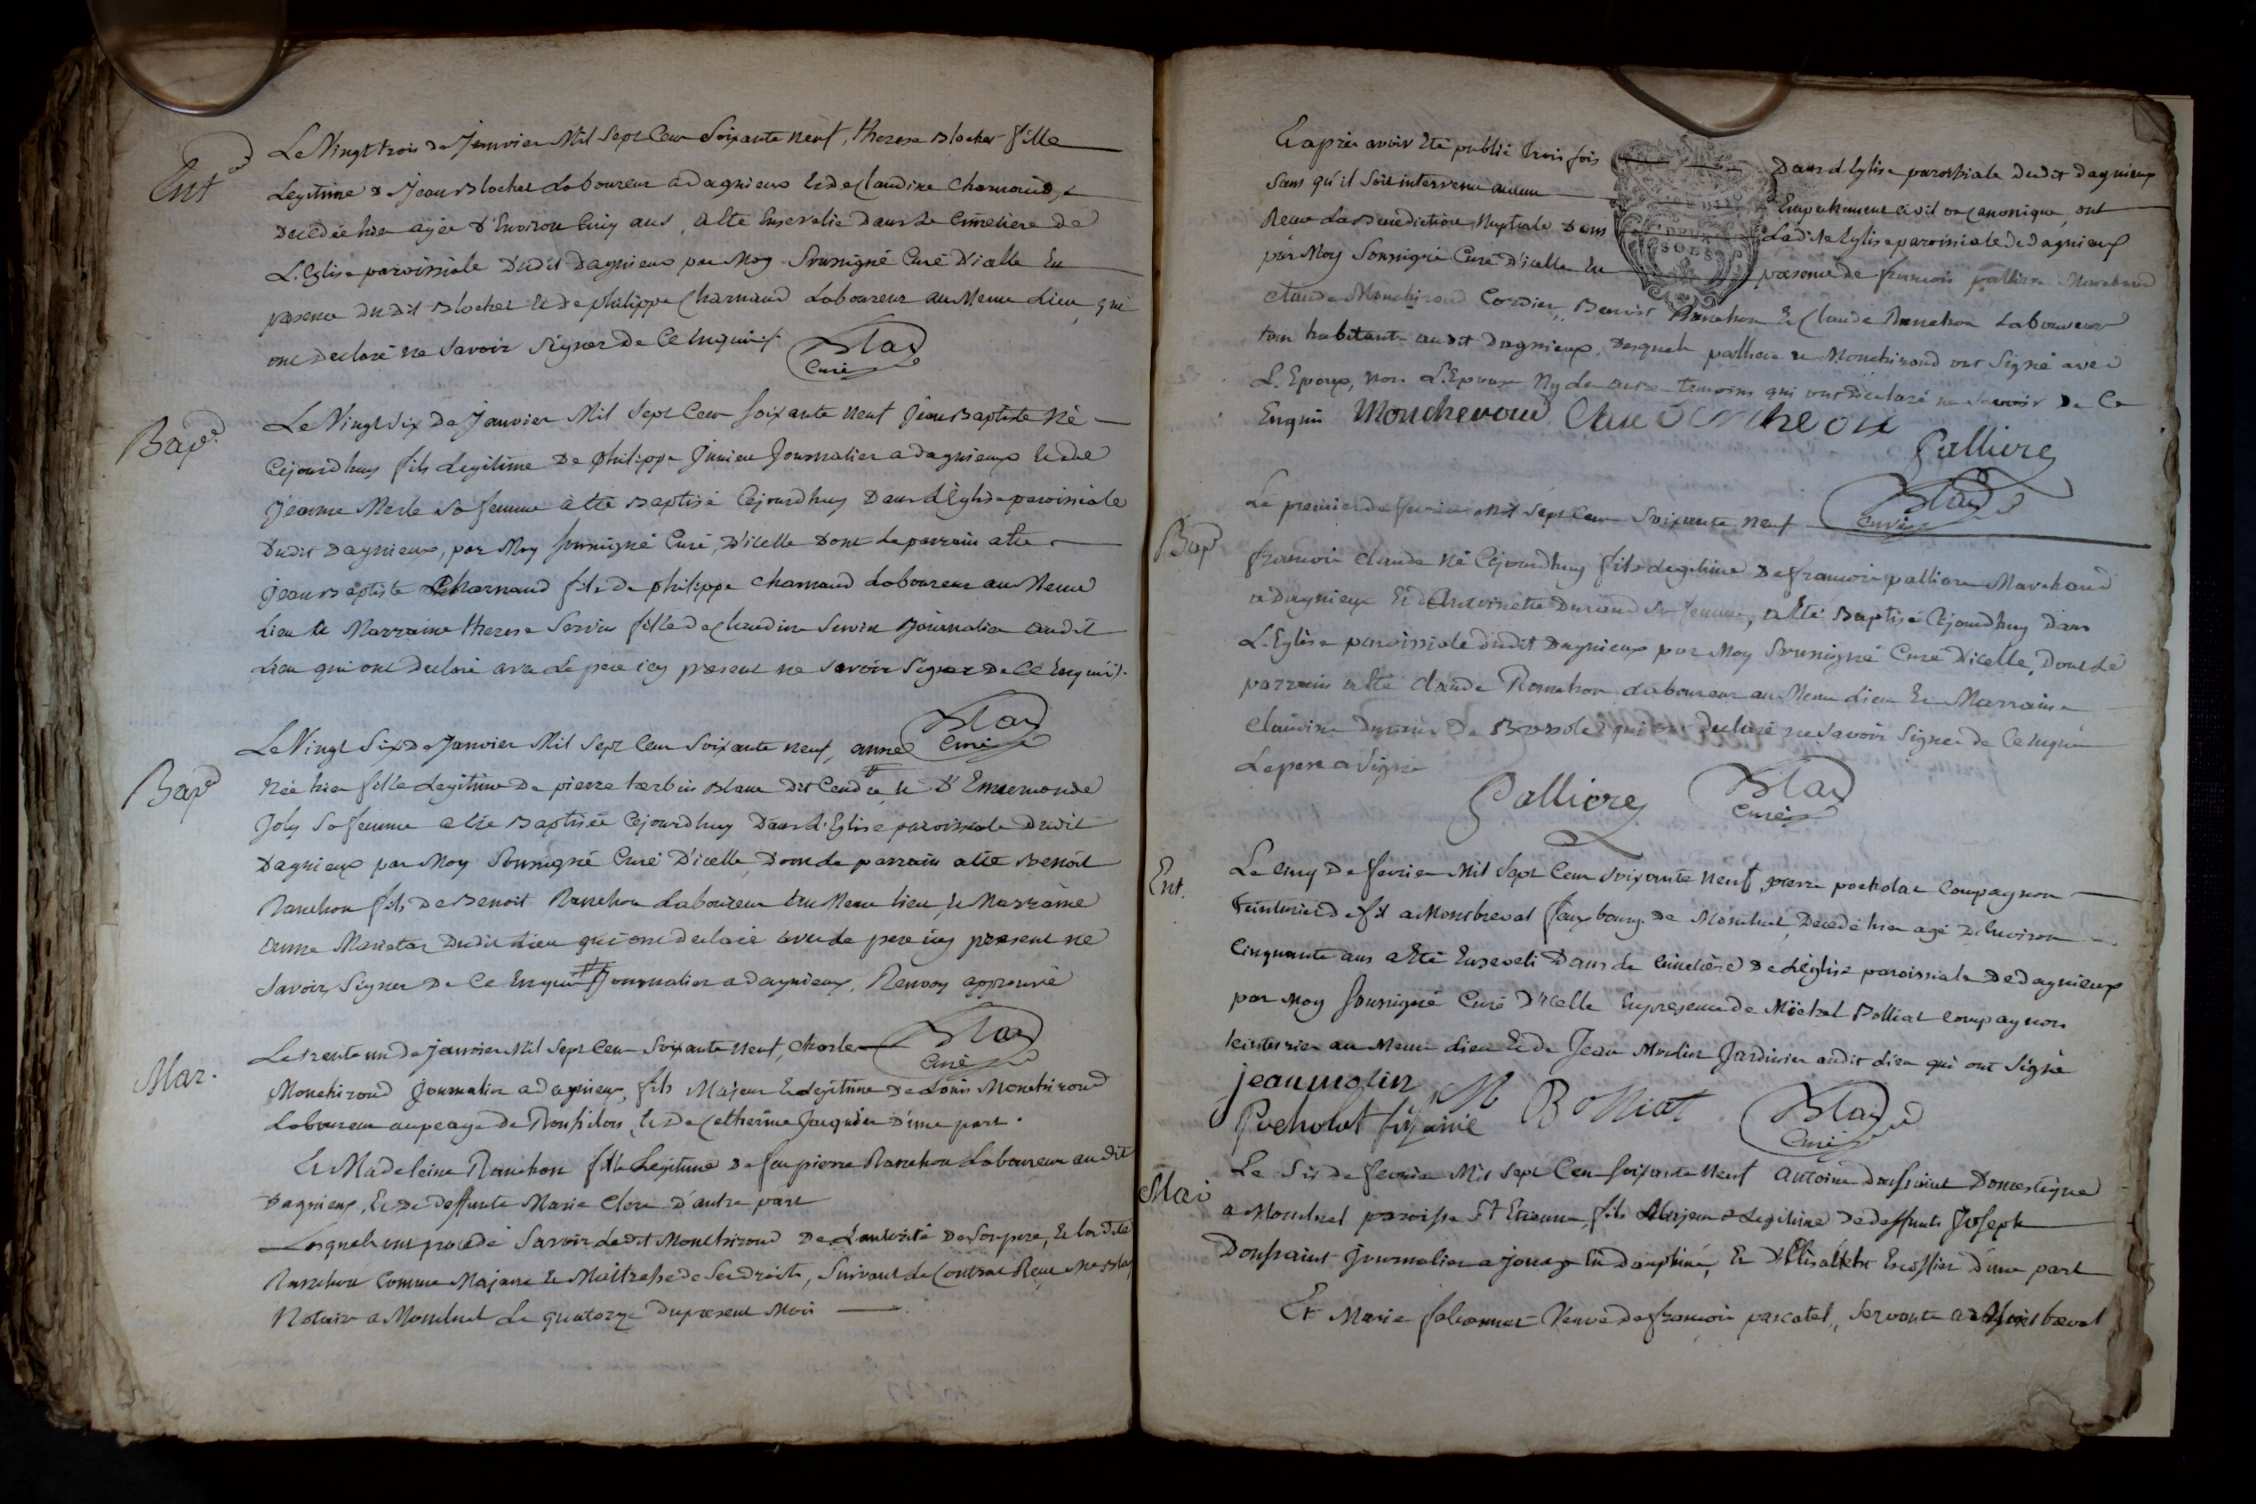 Ent
Le Vingt trois de Janvier Mil Sept Cent Soixante neuf, therese Blochet fille
Legitime de Jean Blochet Laboureur a dagnieux et de Claudine Charnaud
Decedée hier agée d'Environ Cinq ans, a été Ensevelie Dans le Cimetiere de
L'Eglise paroissiale Dudit Dagnieux par Moy Soussigné Curé D'icelle En
presence dudit Blochet et de philippe Charnaud Laboureur au Meme Lieu, qui
ont Declaré ne Savoir Signer De Ce Enquis
Blad
Curé
Bapt
Le Vingt Six de Janvier Mil Sept Cent Soixante neuf Jean Baptiste Né
Cejourdhuy fils Legitime De philippe Journalier a dagnieux et de
Jeanne Merle Sa femme a été Baptisé Cejourdhuy Dans L'Eglise paroissiale
Dudit Dagnieux, par Moy Soussigné Curé, D'icelle Dont Le parrain a été
Jean Baptiste Charnaud fils De philippe Charnaud Laboureur au Meme
Lieu et Marraine therese Servin fille de Claudine Servin Journalier audit
Lieu qui ont Declaré avec Le pere icy present ne Savoir Signer De Ce Enquis
Blad
Curé
Bapt
Le Vingt Six De Janvier Mil Sept Cent Soixante neuf, anne
Née hier fille Legitime De pierre Blanc Dit et D'Ennemonde
Joly Sa femme a été Baptisée Cejourdhuy Dans L'Eglise paroissiale Dudit
Dagnieux par Moy Soussigné Curé D'icelle, Dont Le parrain a été Benoit
Ranchon fils De Benoit Ranchon Laboureur au Meme lieu, et Marraine
anne Dudit Lieu qui ont declaré avec Le pere icy present ne
Savoir Signer De Ce Enquis # Journalier a dagnieux. Renvoy approuvé
Blad
Curé
Mar.
Le trente un De janvier Mil Sept Cent Soixante neuf, Charle
Monchiroud Journalier a dagnieux, fils Majeur et Legitime De Louis Monchiroud
Laboureur au peage de Roussilon, et De Catherine Jacquier D'une part.
Et Madeleine Ranchon fille Legitime De feu pierre Ranchon Laboureur audit
Dagnieux, Et De deffunte Marie Clere D'autre part
Lesquels ont procédé Savoir Ledit Monchiroud De L'autorité De Son pere, Et La dite
Ranchon Comme Majeure et Maitresse de Ses droits, Suivant Le Contrat Reçu Me
Notaire a Montluel Le quatorze Du present Mois
Et aprés avoir été publié trois fois Dans L'Eglise paroissiale Dudit Dagnieux
Sans qu'il Soit intervenu aucun Empechement Civil ou Canonique, ont
Receu La Benediction Nuptiale Dans Ladite Eglise paroissiale De dagnieux
par Moy Soussigné Curé D'icelle En presence de francois palliere Marchand
Claude Monchiroud Cordier, Benoist Ranchon Et Claude Ranchon Laboureurs
tous habitants audit Dagnieux, Desquels palliere et Monchiroud ont Signé avec
L'Epoux, Non L'Epouse Ny Les autres temoins qui ont declaré ne Savoir De Ce
Enquis Moncheroud
Palliere
Blad
Curé
Bapt
Le premier de fevrier Mil Sept Cent Soixante neuf
francois Claude Né Cejourdhuy fils Legitime De francois palliere Marchand
a Dagnieux Et D'Antoinette Durand Sa femme, a Eté Baptisé Cejourdhuy Dans
L'Eglise paroissiale Dudit Dagnieux par Moy Soussigné Curé D'icelle, Dont Le
parrain a été Claude Ranchon Laboureur au Meme Lieu Et Marraine
Claudine De qui ont declaré ne Savoir Signer de Ce Enquis
Le pere a Signé
Palliere
Blad
Curé
Ent.
Le Cinq De fevrier Mil Sept Cent Soixante Neuf, pierre pocholat Compagnon
teinturier De fil a Montbreval fauxbourg De Montluel, Decedé hier agé D'Environ
Cinquante ans a Eté Enseveli Dans Le Cimetière De L'eglise paroissiale De dagnieux
par Moy Soussigné Curé D'icelle En presence de Michel Bolliat Compagnon
teinturier au Meme Lieu Et De Jean Molin Jardinier audit Lieu qui ont Signé
jean molin M Bolliat
Pocholat
Blad
Curé
Mar
Le Six De fevrier Mil Sept Cent Soixante Neuf Antoine Domestique
a Montluel paroisse St Etienne fils Majeur et Legitime De deffunts Joseph
Journalier a En Dauphiné, Et D'Elisabeth D'une part
Et Marie Veuve De francois pascatel, Servante a Montbreval